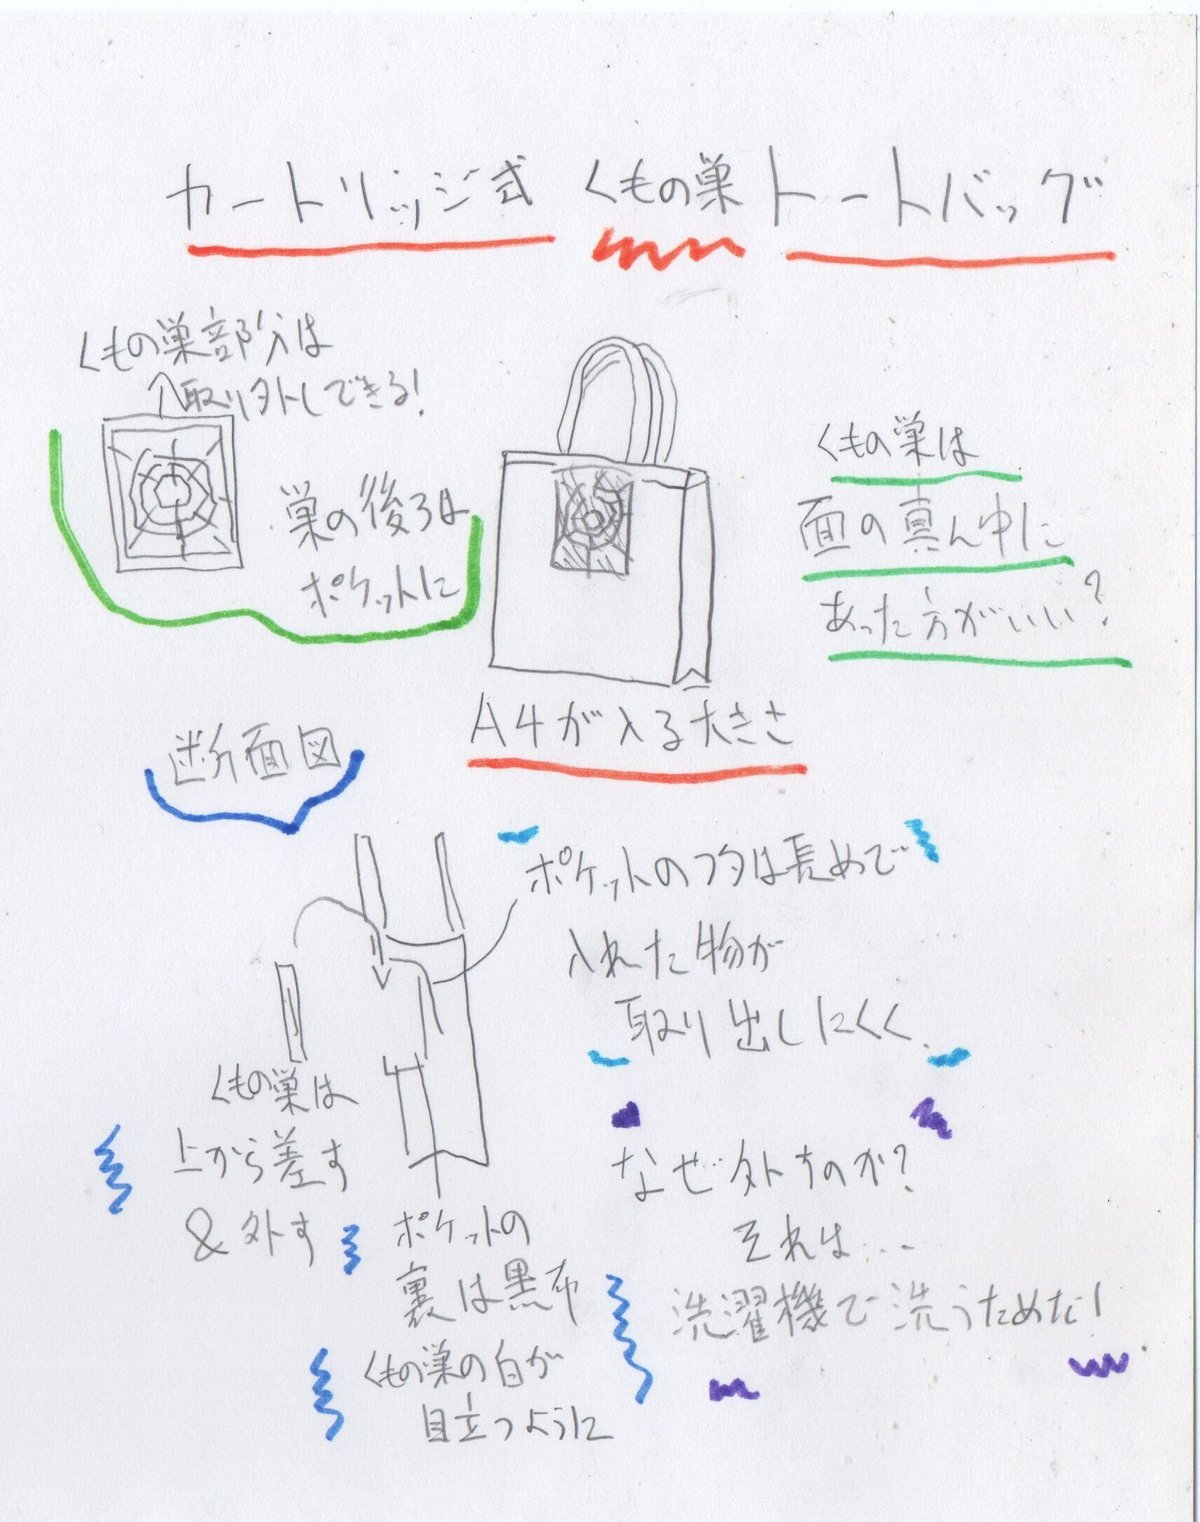 カートリッジ式 くもの巣トートバッグ
くもの巣部分は
取り外しできる!
巣の後ろは
ポケットに
くもの巣は
面の真ん中に
あった方がいい?
A4が入る大きさ
断面図
ポケットのフタは長めで
入れた物が
取り出しにくく.
くもの巣は
上から差す
&外す
ポケットの
裏は黒布
くもの巣の白が
目立つように
なぜ外すのか?
それは...
洗濯機で洗うためだ!